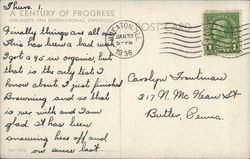 Thurs. 1.
A CENTURY OF PROGRESS
CHICAGO'S 1933 INTERNATIONAL EXPOSITION
POST CARD
Finally things are all o
This has been a bad week
I got a 95 in organic, but
that is the only test I
know about. I just finished
Browning and so that
is over with and I am
glad it has been
snowing here off and
on since last
5-PM
1936
Carolyn Troutman
317 N. Mc Kean St
Butler, Penna.